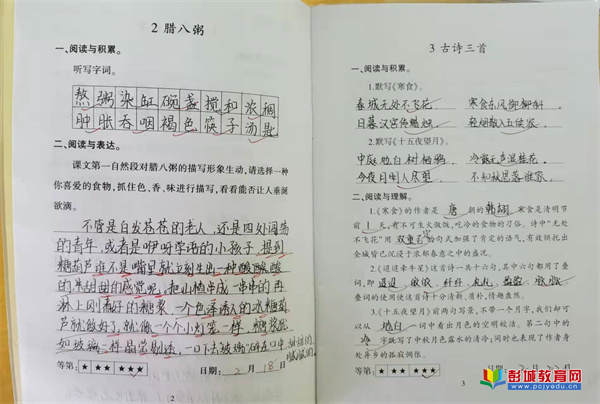 2 腊八粥
一、阅读与积累。
听写字词。
熬 粥 染 缸 碗 盏 搅 和 浓 稠
肿 胀 吞 咽 褐 色 筷 子 汤 匙
二、阅读与表达。
课文第一自然段对腊八粥的描写形象生动,请选择一种
你喜爱的食物,抓住色、香、味进行描写,看看能否让人垂涎
欲滴。
不管是白发花花的老人,还是四处闯荡
的青年,或者是咿呀学语的小孩子,提到
糖葫芦谁不是嘴里就立刻生出一种酸酸
的 的感觉呢,把山楂串成一串串的再
淋上刚 好的糖浆,一个色泽诱人的冰糖葫
芦就做好了,就像一个个小灯笼一样,糖浆
如玻璃一样晶莹剔透,一口下去
等第: ★ ★★ ★★★ 日期: 2 月 18 日
2
3 古诗三首
一、阅读与积累。
1.默写《寒食》。
春城无处不飞花, 寒食东风御柳斜。
日暮汉宫传蜡烛, 轻烟散入五侯家。
2.默写《十五夜望月》。
中庭地白树栖鸦, 冷露无声湿桂花,
今夜月明人尽望, 不知秋思落谁家。
二、阅读与理解。
1.《寒食》的作者是 唐 朝的 韩翃 寒食是清明节
前 1 天,有不可生火做饭,吃冷的食物的习俗。诗中"无处
不飞花"用 双重否定 的句式加强了肯定的语气,有效烘托出
全城皆已沉浸于浓郁春意之中的盛况。
2.《迢迢牵牛星》这首诗一共十六句,其中六句都用了叠
词,即 迢迢 、 皎皎 、 纤纤 、 札札 、 盈盈 、 脉脉
叠词的使用使这首诗十分清丽,质朴,情趣盎然。
3.《十五夜望月》前两句写景,不带一个月字,我们却可
以从 地白 词中看出月色的空明皎洁。第二句中的
冷 字既写了中秋月色露水的清冷;同时也表现了作者身
处萍乡的孤寂惆怅。
等第: ★ ★★ ★★★ 日期: 2 月 22 日
3
彭城教育网
www.pcjyedu.cn